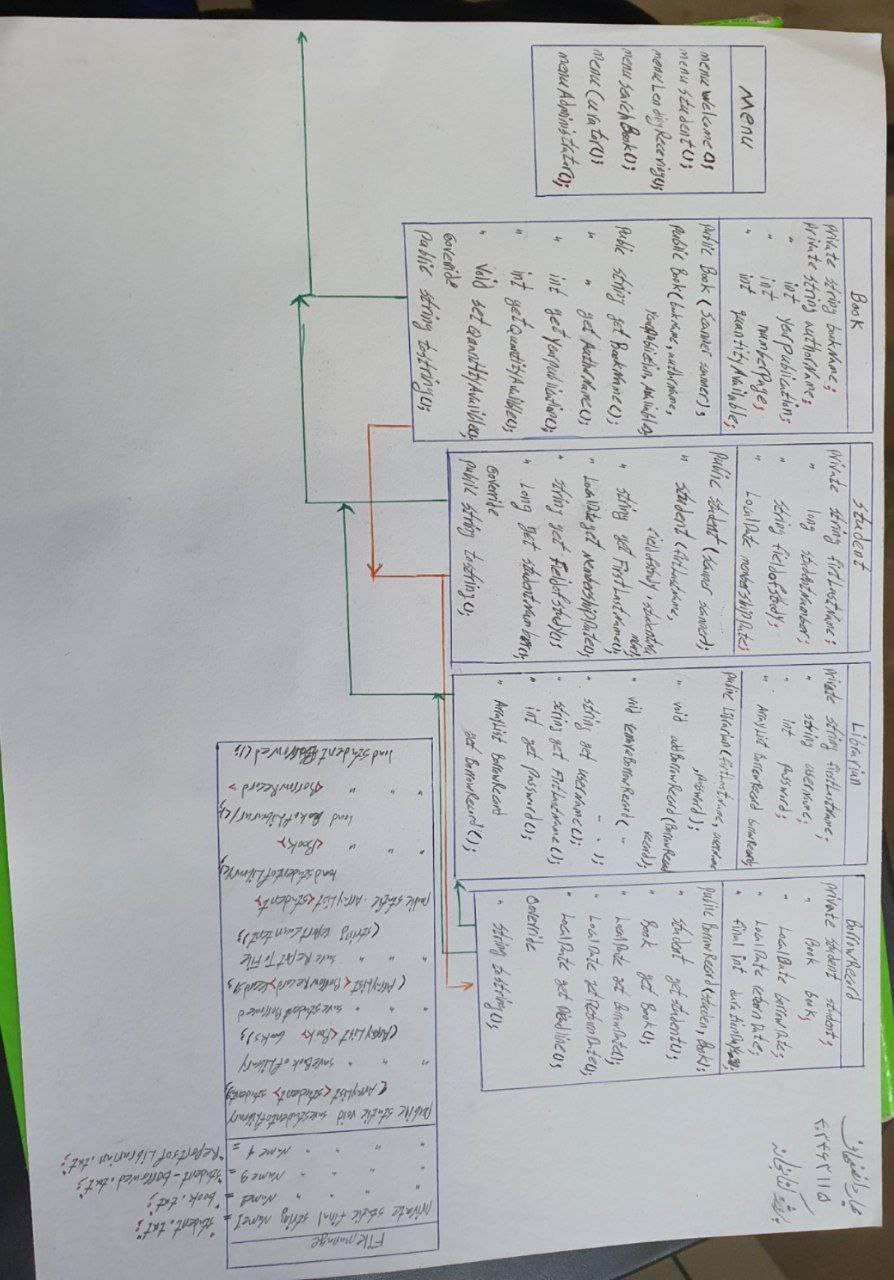 Menu
menuWelcome();
menu student();
menuLendingReceving();
menu searchBook();
menu Curator();
menuAdministator();
Book
private string bookName;
private string authorName;
" int yearpublication;
" int numberPage;
" int quantityAvailable;
public Book (Scanner scanner);
public Book (bookname, authorname,
public string get BookName();
" " get AuthorName();
" int get Yearpublication();
" int getQuantityAvailble();
" Void setQuantityAvailble();
override
public string tostring();
student
private string firstLastname;
" long studentnumber;
" string fieldofstudy;
" LocalDate membershipDate;
public student (scanner scanner);
" student (firstLastname,
fieldofstudy, student
" string get FirstLastname();
" LocalDate get MembershipDate();
" string get Fieldofstudy();
" Long get studentnumber();
override
public string tostring();
Librarian
private string firstLastname;
" string username;
" int password;
" ArrayList BorrowRecord borrowRecord;
public Librarian (firstLastname, username
, password);
" void addBorrowRecord (BorrowRecord
record);
" void removeBorrowRecord ( "
" " );
" string get username();
" string get FirstLastname();
" int get password();
" ArrayList BorrowRecord
get BorrowRecord();
BorrowRecord
private student student;
" Book book;
" LocalDate borrowDate;
" LocalDate returnDate;
" final int
public BorrowRecord (student, Book);
" student get student();
" Book get Book();
" LocalDate get BorrowDate();
" LocalDate getReturnDate();
" LocalDate get Deadline();
override
" string tostring();
File manage
private static final string name1 = "student.txt";
" " " " Name2 = "book.txt";
" " " " Name3 = "student-borrowed.txt";
" " " " Name4 = "ReportsofLibrarian.txt";
public static void savestudentofLibrary
(ArrayList <student> student);
" " " saveBookofLibrary
(ArrayList <Book> books);
" " " savestudentBorrowed
(ArrayList <BorrowRecord> Record);
" " " save Report To File
(string reportcountent);
public static ArrayList <student>
loadstudentofLibrary();
" " " <Book>
load BookofLibrary();
" " " <BorrowRecord>
load student Borrowed();